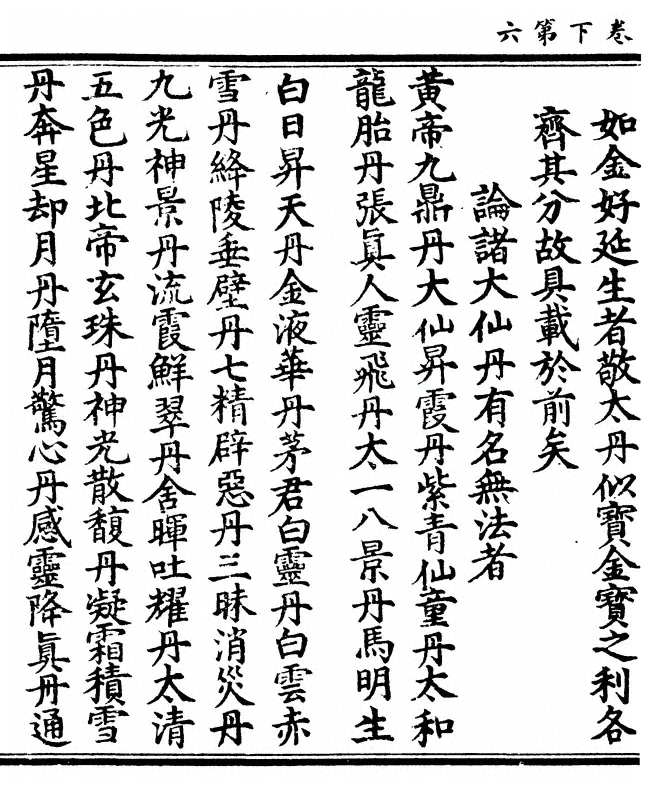 卷下第六
如金好延生者敬太丹似寶金寶之利各
齊其分故具載於前矣
論諸大仙丹有名無法者
黃帝九鼎丹大仙昇霞丹紫青仙童丹太和
龍胎丹張眞人靈飛丹太一八景丹馬明生
白日昇天丹金液華丹茅君白靈丹白雲赤
雪丹絳陵垂璧丹七精辟惡丹三昧消災丹
九光神景丹流霞鮮翠丹舍暉吐耀丹太清
五色丹北帝玄珠丹神光散馥丹凝霜積雪
丹奔星却月丹墮月驚心丹感靈降眞丹通